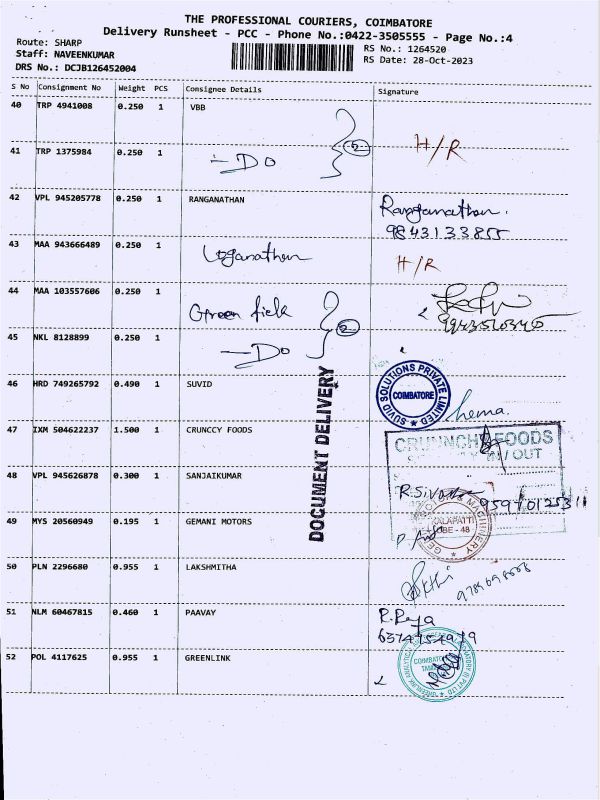 THE PROFESSIONAL COURIERS, COIMBATORE
Delivery Runsheet - PCC - Phone No.:0422-3505555 - Page No.:4
Route: SHARP
Staff: NAVEENKUMAR
DRS No.: DCJB126452004
RS No.: 1264520
RS Date: 28-Oct-2023
S No Consignment No Weight PCS Consignee Details Signature
40 TRP 4941008 0.250 1 VBB
2
H/R
41 TRP 1375984 0.250 1 - Do
42 VPL 945205778 0.250 1 RANGANATHAN Ranganathan.
9843133855
43 MAA 943666489 0.250 1 Loganathan H/R
44 MAA 103557606 0.250 1 Green field
2
9943520340
45 NKL 8128899 0.250 1 - Do
46 HRD 749265792 0.490 1 SUVID
SUVID SOLUTIONS PRIVATE LIMITED
COIMBATORE
hema.
DOCUMENT DELIVERY
47 IXM 504622237 1.500 1 CRUNCCY FOODS
CRUNCHY FOODS
IN / OUT
48 VPL 945626878 0.300 1 SANJAIKUMAR
49 MYS 20560949 0.195 1 GEMANI MOTORS
KALAPATTI
CBE - 48
50 PLN 2296680 0.955 1 LAKSHMITHA
51 NLM 60467815 0.460 1 PAAVAY R. Raja
52 POL 4117625 0.955 1 GREENLINK